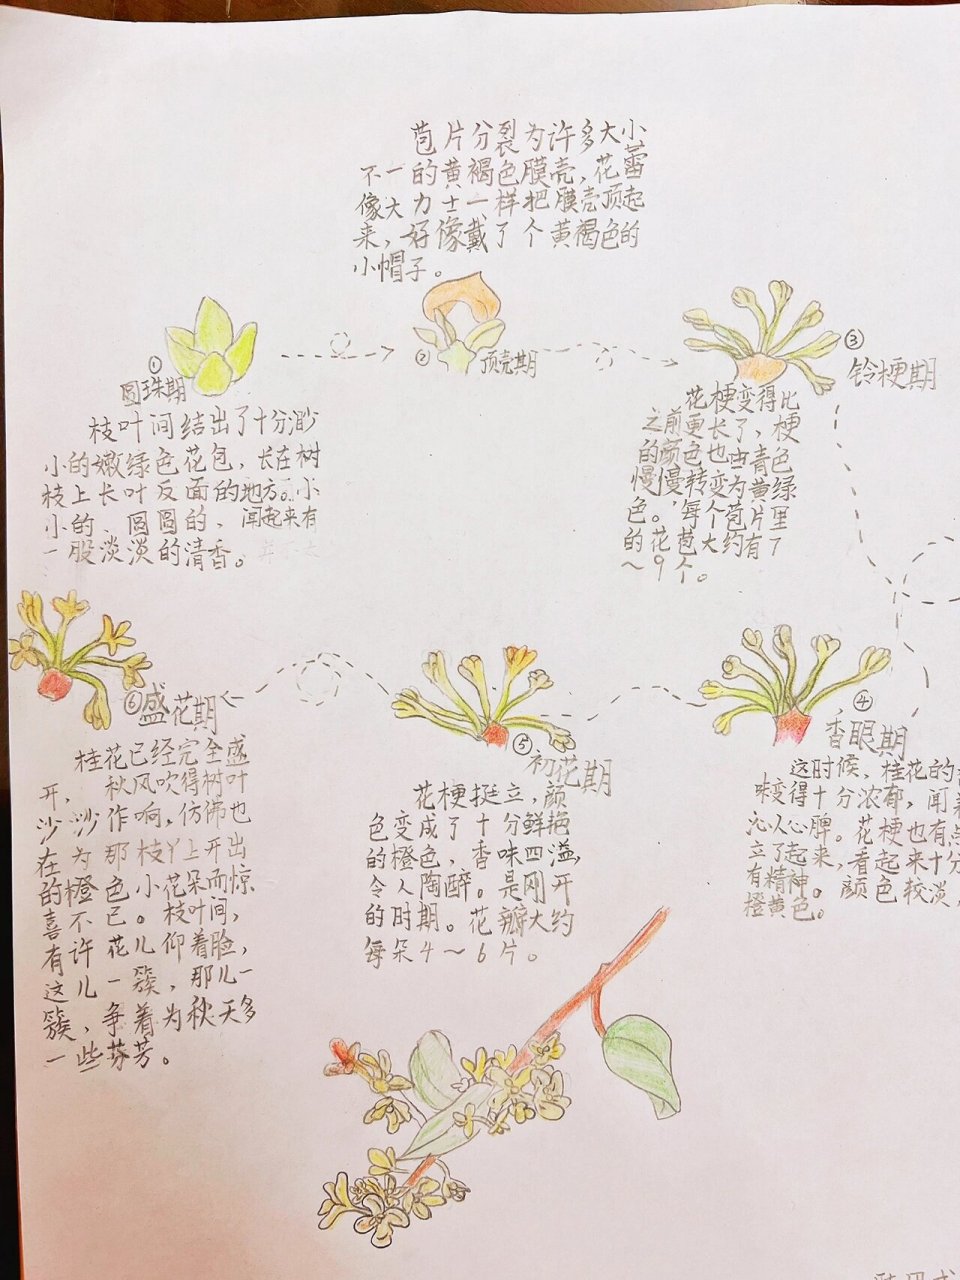 苞片分裂为许多大小
不一的黄褐色膜壳,花蕾
像大力士一样把膜壳顶起
来,好像戴了个黄褐色的
小帽子。
①
圆珠期
枝叶间结出了十分渺
小的嫩绿色花包,长在树
枝上长叶反面的地方。小
小的、圆圆的,闻起来有
一股淡淡的清香。
②
顶壳期
③
铃梗期
花梗变得比
之前更长了,梗
的颜色也由青色
慢慢转变为黄绿
色。每个苞片里
的花苞大约有7
~9个。
④
香眼期
这时候,桂花的
味变得十分浓郁,闻
沁人心脾。花梗也有点
立了起来,看起来十分
有精神。颜色较淡,
橙黄色。
⑤
初花期
花梗挺立,颜
色变成了十分鲜艳
的橙色,香味四溢,
令人陶醉。是刚开
的时期。花瓣大约
每朵4~6片。
⑥盛花期
桂花已经完全盛
开,秋风吹得树叶
沙沙作响,仿佛也
在为那枝丫上开出
的橙色小花朵而惊
喜不已。枝叶间,
有许花儿仰着脸,
这儿一簇,那儿一
簇,争着为秋天多
一些芬芳。